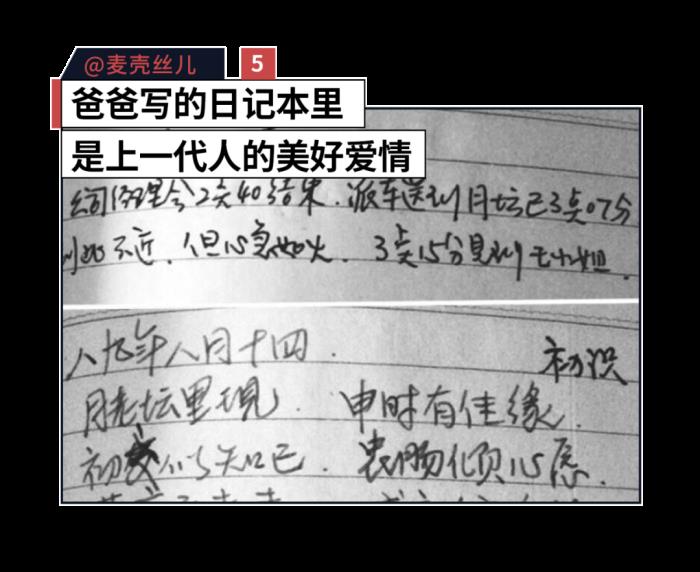 @麦壳丝儿 5
爸爸写的日记本里
是上一代人的美好爱情
例会2点40结束.派车送到月坛已3点07分
不近.但心急如火.3点15分见到王小姐.
八九年八月十四. 初识
月老坛里现. 申时有佳缘.
初似知己. 衷肠倾心愿.